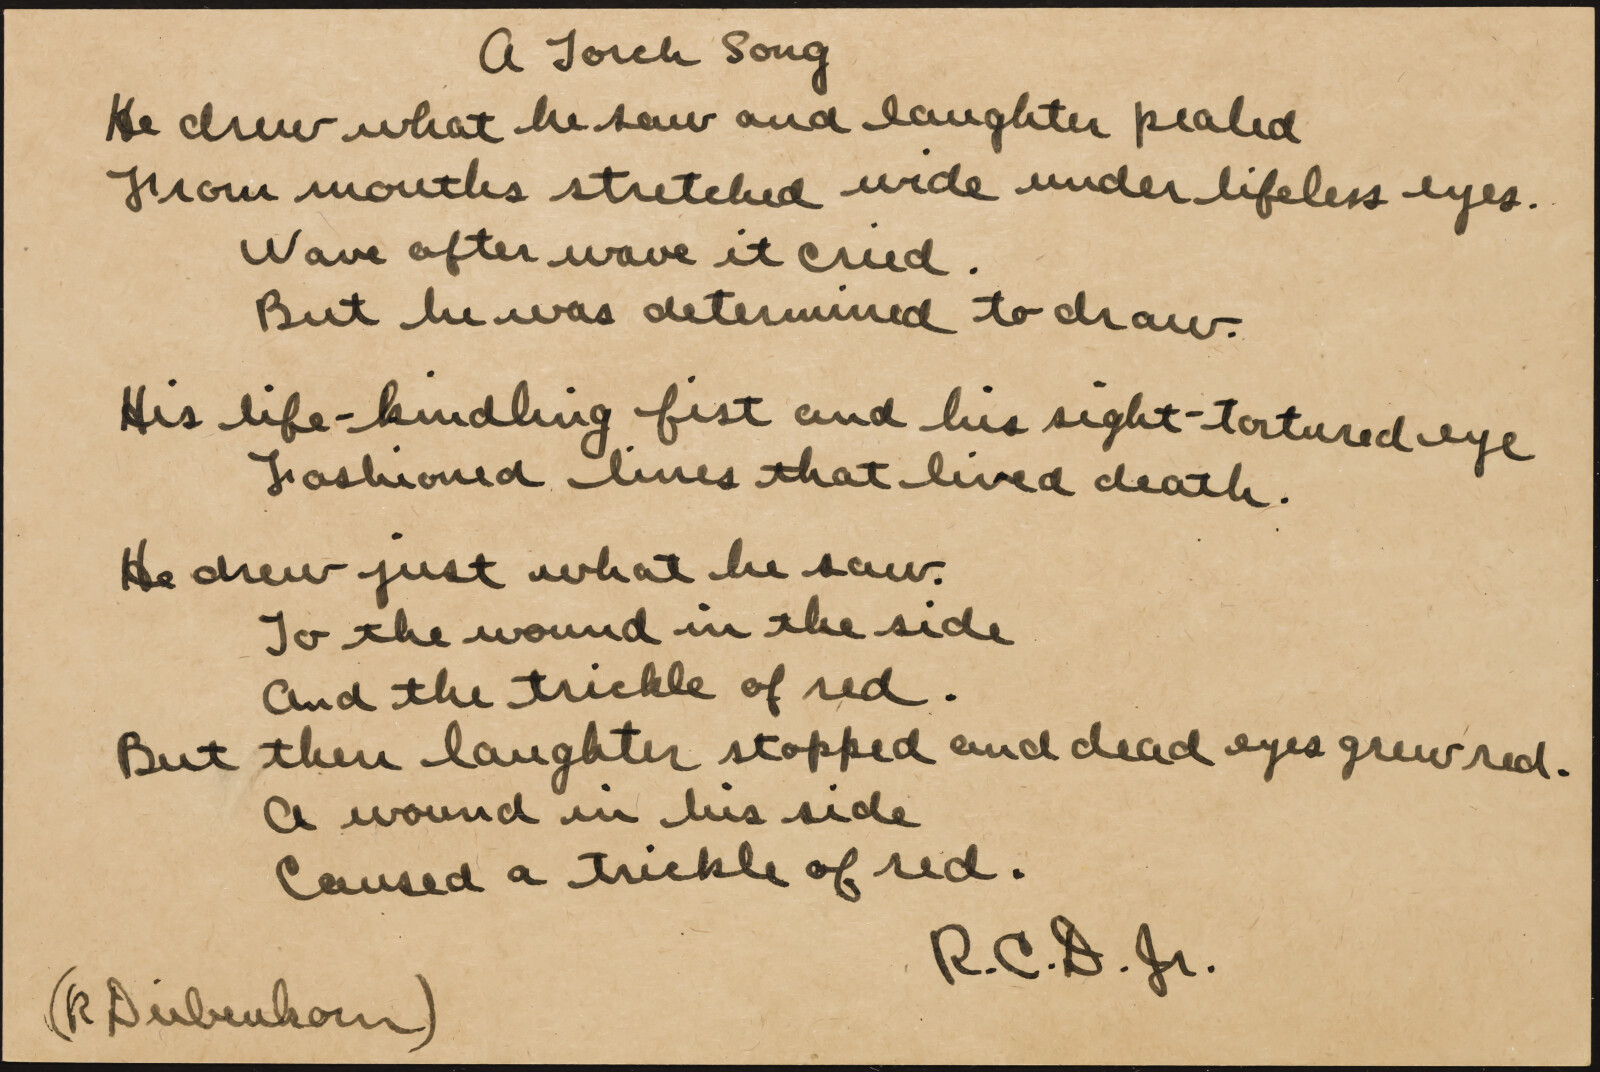 A Torch Song
He drew what he saw and laughter pealed
From mouths stretched wide under lifeless eyes.
Wave after wave it cried.
But he was determined to draw.
His life-kindling fist and his sight-tortured eye
Fashioned lines that lived death.
He drew just what he saw.
To the wound in the side
And the trickle of red.
But then laughter stopped and dead eyes grew red.
A wound in his side
Caused a trickle of red.
R.C.D. Jr.
(R Diebenkorn)